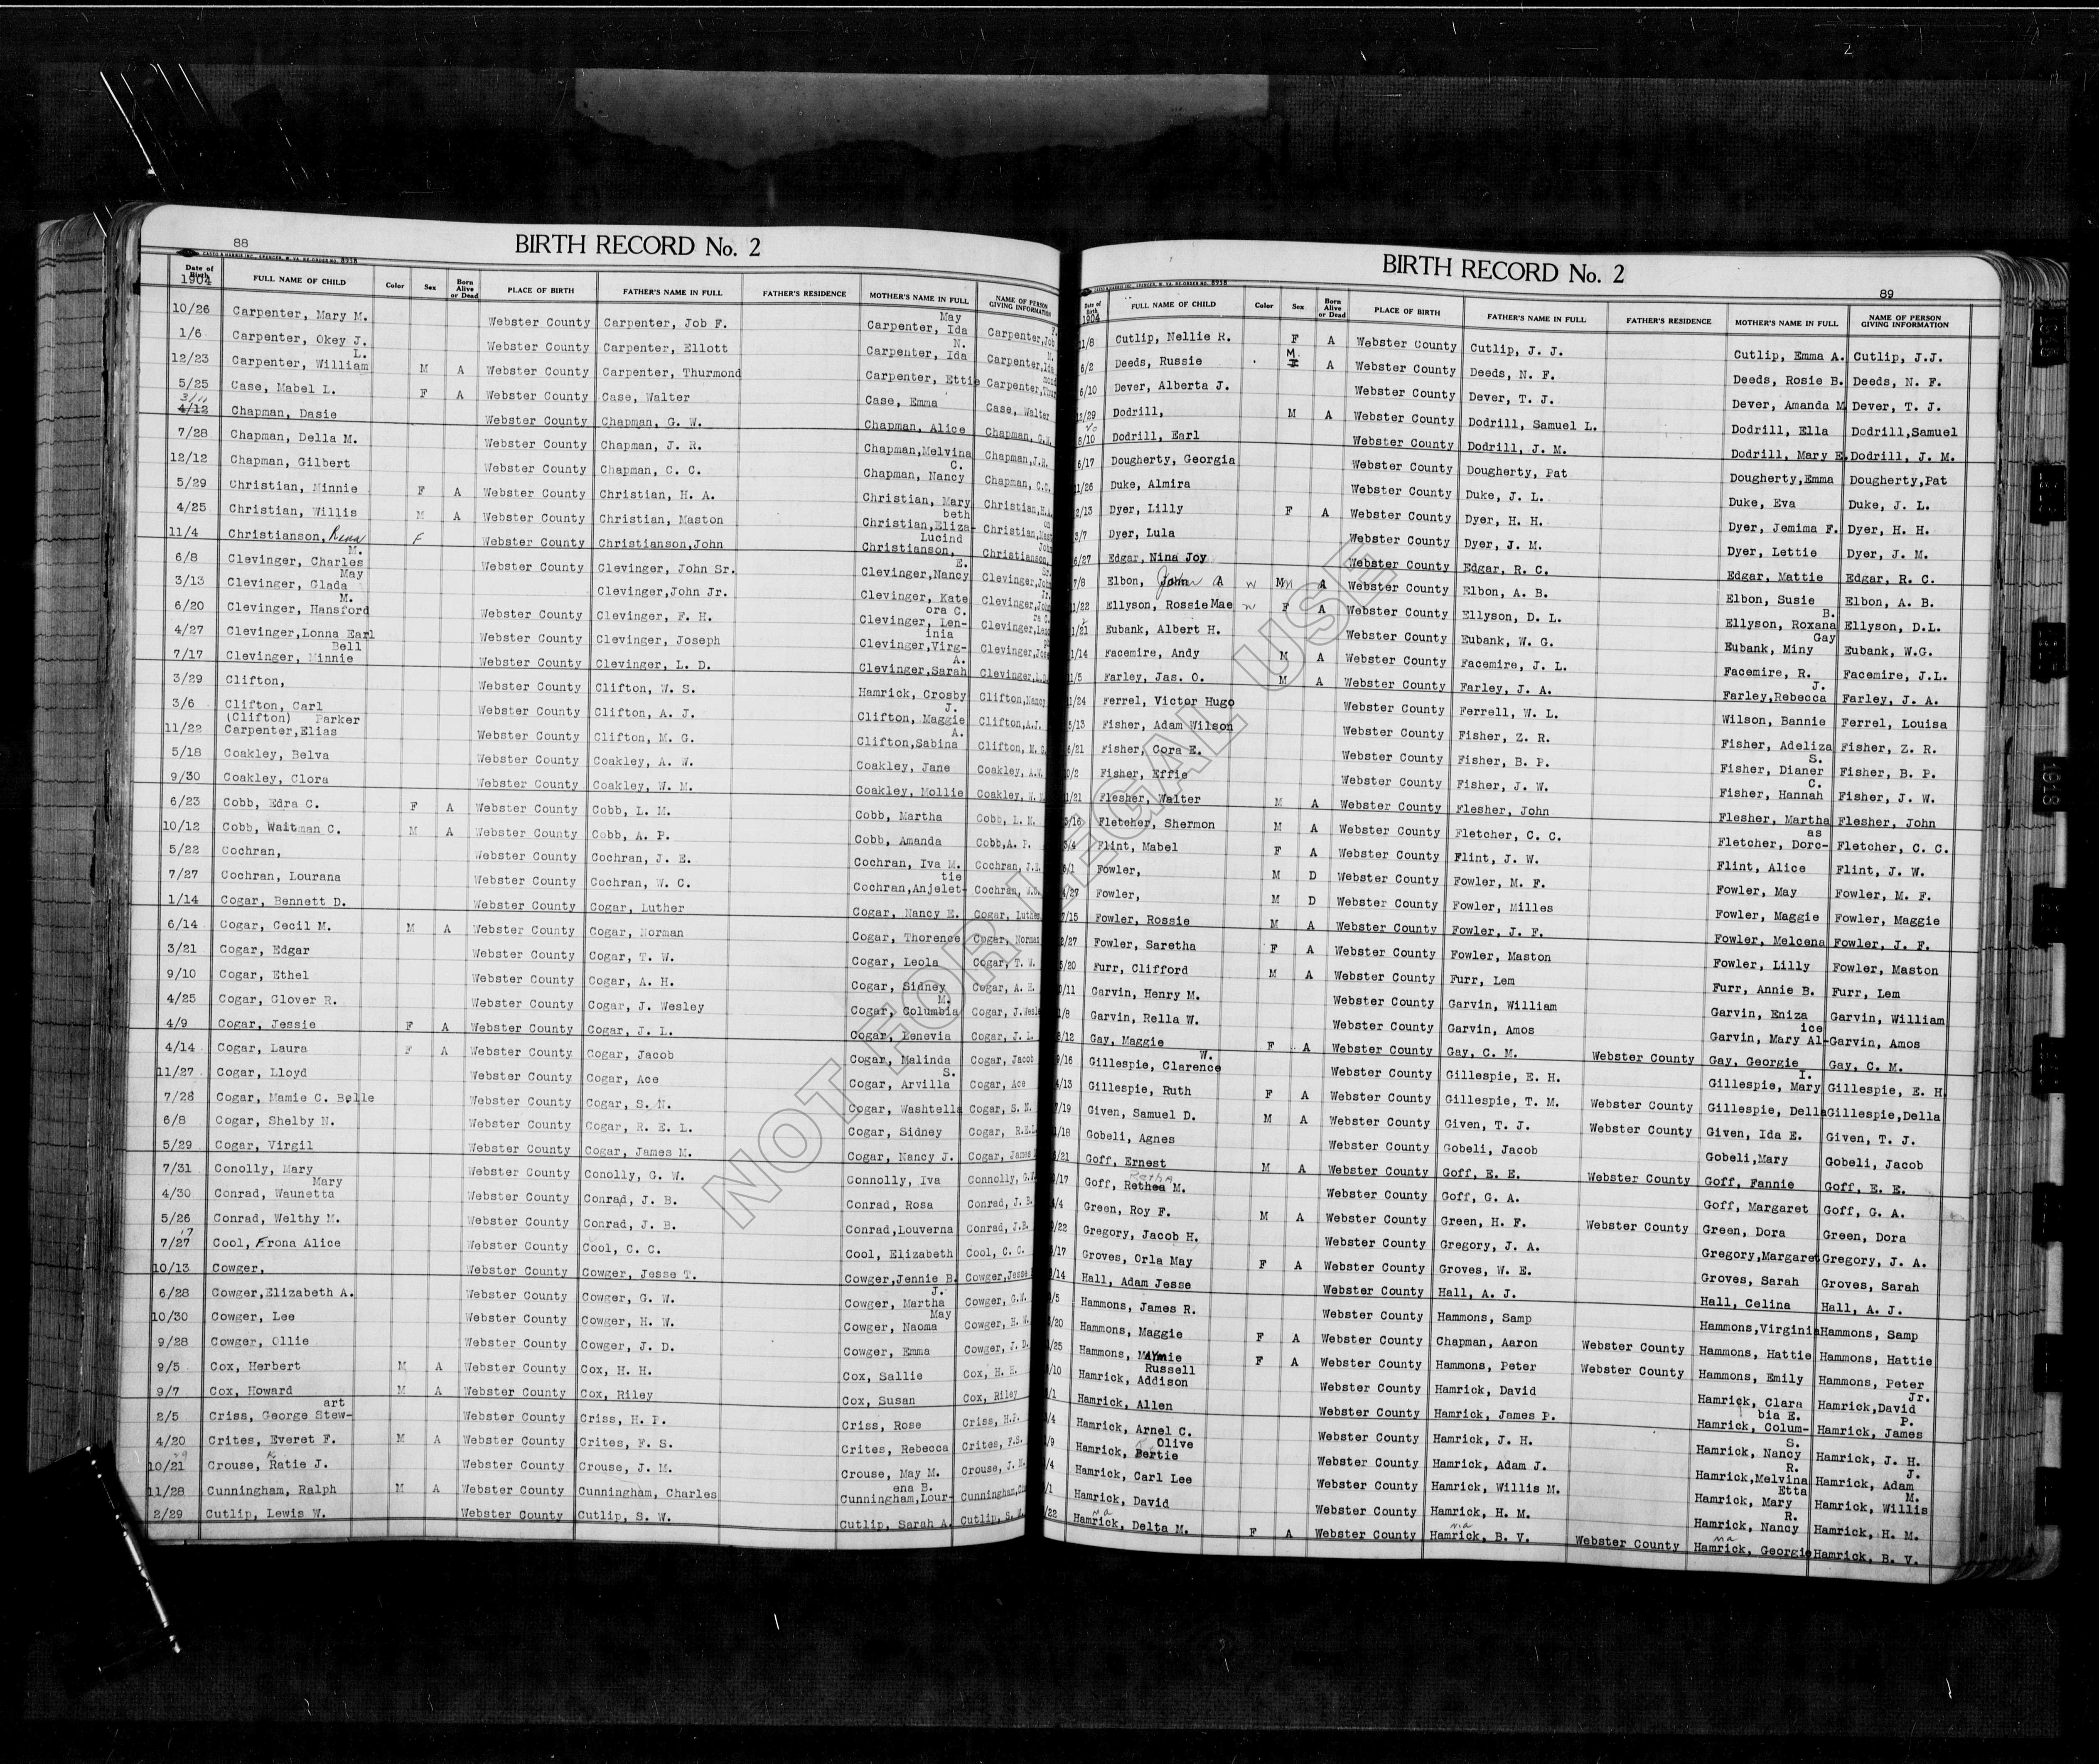 88
BIRTH RECORD No. 2
Date of Birth FULL NAME OF CHILD Color Sex Born Alive or Dead PLACE OF BIRTH FATHER'S NAME IN FULL FATHER'S RESIDENCE MOTHER'S NAME IN FULL NAME OF PERSON GIVING INFORMATION
1904
10/26 Carpenter, Mary M. Webster County Carpenter, Job F. Carpenter, Ida May Carpenter, Job F.
1/6 Carpenter, Okey J. Webster County Carpenter, Ellott Carpenter, Ida N. Carpenter, Ida M.
12/23 Carpenter, William L. M A Webster County Carpenter, Thurmond Carpenter, Ettie Carpenter, Thurmond
5/25 Case, Mabel L. F A Webster County Case, Walter Case, Emma Case, Walter
4/12 Chapman, Dasie Webster County Chapman, G. W. Chapman, Alice Chapman, G.W.
7/28 Chapman, Della M. Webster County Chapman, J. R. Chapman,Melvina Chapman,J.R.
12/12 Chapman, Gilbert Webster County Chapman, C. C. Chapman, Nancy C. Chapman, C.C.
5/29 Christian, Minnie F A Webster County Christian, H. A. Christian, Mary Christian,H.A.
4/25 Christian, Willis M A Webster County Christian, Maston Christian,Elizabeth Christian,Maston
11/4 Christianson, Rena F Webster County Christianson,John Christianson, Lucind Christianson, John
6/8 Clevinger, Charles M. Webster County Clevinger, John Sr. Clevinger,Nancy E. Clevinger,John Sr.
3/13 Clevinger, Glada May Clevinger,John Jr. Clevinger, Kate Clevinger,John Jr.
6/20 Clevinger, Hansford M. Webster County Clevinger, F. H. Clevinger, Len-ora C. Clevinger,Lenora C.
4/27 Clevinger,Lonna Earl Webster County Clevinger, Joseph Clevinger,Virg-inia Clevinger,Jose
7/17 Clevinger, Minnie Bell Webster County Clevinger, L. D. Clevinger,Sarah A. Clevinger,L.D.
3/29 Clifton, Webster County Clifton, W. S. Hamrick, Crosby Clifton,Nancy
3/6 Clifton, Carl Webster County Clifton, A. J. Clifton, Maggie J. Clifton,A.J.
11/22 (Clifton) Parker Carpenter,Elias Webster County Clifton, M. G. Clifton,Sabina A. Clifton, M. G.
5/18 Coakley, Belva Webster County Coakley, A. W. Coakley, Jane Coakley, A.W.
9/30 Coakley, Clora Webster County Coakley, W. M. Coakley, Mollie Coakley, W. M.
6/23 Cobb, Edra C. F A Webster County Cobb, L. M. Cobb, Martha Cobb, L. M.
10/12 Cobb, Waitman C. M A Webster County Cobb, A. P. Cobb, Amanda Cobb,A. P.
5/22 Cochran, Webster County Cochran, J. E. Cochran, Iva M. Cochran, J.E.
7/27 Cochran, Lourana Webster County Cochran, W. C. Cochran,Anjelet-tie Cochran, W.C.
1/14 Cogar, Bennett D. Webster County Cogar, Luther Cogar, Nancy E. Cogar, Luther
6/14 Cogar, Cecil M. M A Webster County Cogar, Norman Cogar, Thorence Cogar, Norman
3/21 Cogar, Edgar Webster County Cogar, T. W. Cogar, Leola Cogar, T. W.
9/10 Cogar, Ethel Webster County Cogar, A. H. Cogar, Sidney Cogar, A. H.
4/25 Cogar, Glover R. Webster County Cogar, J. Wesley Cogar, Columbia M. Cogar, J.Wesle
4/9 Cogar, Jessie F A Webster County Cogar, J. L. Cogar, Lenevia Cogar, J. L.
4/14 Cogar, Laura F A Webster County Cogar, Jacob Cogar, Malinda Cogar, Jacob
11/27 Cogar, Lloyd Webster County Cogar, Ace Cogar, Arvilla S. Cogar, Ace
7/28 Cogar, Mamie C. Belle Webster County Cogar, S. N. Cogar, Washtella Cogar, S. N.
6/8 Cogar, Shelby N. Webster County Cogar, R. E. L. Cogar, Sidney Cogar, R.E.L.
5/29 Cogar, Virgil Webster County Cogar, James M. Cogar, Nancy J. Cogar, James
7/31 Conolly, Mary Webster County Conolly, G. W. Connolly, Iva Connolly, G.W.
4/30 Conrad, Waunetta Mary Webster County Conrad, J. B. Conrad, Rosa Conrad, J. B.
5/26 Conrad, Welthy M. Webster County Conrad, J. B. Conrad,Louverna Conrad, J.B.
7/27 Cool, Erona Alice Webster County Cool, C. C. Cool, Elizabeth Cool, C. C.
10/13 Cowger, Webster County Cowger, Jesse T. Cowger,Jennie B. Cowger,Jesse
6/28 Cowger,Elizabeth A. Webster County Cowger, G. W. Cowger, Martha J. Cowger, G.W.
10/30 Cowger, Lee Webster County Cowger, H. W. Cowger, Naoma May Cowger, H. W.
9/28 Cowger, Ollie Webster County Cowger, J. D. Cowger, Emma Cowger, J. D.
9/5 Cox, Herbert M A Webster County Cox, H. H. Cox, Sallie Cox, H. H.
9/7 Cox, Howard M A Webster County Cox, Riley Cox, Susan Cox, Riley
2/5 Criss, George Stew-art Webster County Criss, H. P. Criss, Rose Criss, H.P.
4/20 Crites, Everet F. M A Webster County Crites, F. S. Crites, Rebecca Crites, F.S.
10/21 Crouse, Katie J. Webster County Crouse, J. M. Crouse, May M. Crouse, J. M.
11/28 Cunningham, Ralph M A Webster County Cunningham, Charles Cunningham,Lour-ena B. Cunningham,Cha
2/29 Cutlip, Lewis W. Webster County Cutlip, S. W. Cutlip, Sarah A. Cutlip, S. W.
BIRTH RECORD No. 2
89
Date of Birth FULL NAME OF CHILD Color Sex Born Alive or Dead PLACE OF BIRTH FATHER'S NAME IN FULL FATHER'S RESIDENCE MOTHER'S NAME IN FULL NAME OF PERSON GIVING INFORMATION
1904
11/8 Cutlip, Nellie R. F A Webster County Cutlip, J. J. Cutlip, Emma A. Cutlip, J.J.
6/2 Deeds, Russie M A Webster County Deeds, N. F. Deeds, Rosie B. Deeds, N. F.
6/10 Dever, Alberta J. Webster County Dever, T. J. Dever, Amanda M Dever, T. J.
12/29 Dodrill, M A Webster County Dodrill, Samuel L. Dodrill, Ella Dodrill,Samuel
8/10 Dodrill, Earl Webster County Dodrill, J. M. Dodrill, Mary E. Dodrill, J. M.
6/17 Dougherty, Georgia Webster County Dougherty, Pat Dougherty,Emma Dougherty,Pat
11/26 Duke, Almira Webster County Duke, J. L. Duke, Eva Duke, J. L.
2/13 Dyer, Lilly F A Webster County Dyer, H. H. Dyer, Jemima F. Dyer, H. H.
3/7 Dyer, Lula Webster County Dyer, J. M. Dyer, Lettie Dyer, J. M.
6/27 Edgar, Nina Joy Webster County Edgar, R. C. Edgar, Mattie Edgar, R. C.
7/8 Elbon, John A w M A Webster County Elbon, A. B. Elbon, Susie Elbon, A. B.
1/22 Ellyson, Rossie Mae w F A Webster County Ellyson, D. L. Ellyson, Roxana B. Ellyson, D.L.
1/21 Eubank, Albert H. Webster County Eubank, W. G. Eubank, Miny Gay Eubank, W.G.
1/14 Facemire, Andy M A Webster County Facemire, J. L. Facemire, R. Facemire, J.L.
1/5 Farley, Jas. O. M A Webster County Farley, J. A. Farley,Rebecca J. Farley, J. A.
1/24 Ferrel, Victor Hugo Webster County Ferrell, W. L. Wilson, Bannie Ferrel, Louisa
5/13 Fisher, Adam Wilson Webster County Fisher, Z. R. Fisher, Adeliza Fisher, Z. R.
6/21 Fisher, Cora E. Webster County Fisher, B. P. Fisher, Dianer S. Fisher, B. P.
0/2 Fisher, Effie Webster County Fisher, J. W. Fisher, Hannah C. Fisher, J. W.
1/21 Flesher, Walter M A Webster County Flesher, John Flesher, Martha Flesher, John
3/16 Fletcher, Shermon M A Webster County Fletcher, C. C. Fletcher, Dorc-as Fletcher, C. C.
3/4 Flint, Mabel F A Webster County Flint, J. W. Flint, Alice Flint, J. W.
6/1 Fowler, M D Webster County Fowler, M. F. Fowler, May Fowler, M. F.
4/27 Fowler, M D Webster County Fowler, Milles Fowler, Maggie Fowler, Maggie
7/15 Fowler, Rossie M A Webster County Fowler, J. F. Fowler, Melcena Fowler, J. F.
2/27 Fowler, Saretha F A Webster County Fowler, Maston Fowler, Lilly Fowler, Maston
5/20 Furr, Clifford M A Webster County Furr, Lem Furr, Annie B. Furr, Lem
0/11 Garvin, Henry M. Webster County Garvin, William Garvin, Eniza Garvin, William
1/8 Garvin, Rella W. Webster County Garvin, Amos Garvin, Mary Al-ice Garvin, Amos
8/12 Gay, Maggie F A Webster County Gay, C. M. Webster County Gay, Georgie Gay, C. M.
9/16 Gillespie, Clarence W. Webster County Gillespie, E. H. Gillespie, Mary I. Gillespie, E. H
4/13 Gillespie, Ruth F A Webster County Gillespie, T. M. Webster County Gillespie, Della Gillespie,Della
7/19 Given, Samuel D. M A Webster County Given, T. J. Webster County Given, Ida E. Given, T. J.
1/18 Gobeli, Agnes Webster County Gobeli, Jacob Gobeli,Mary Gobeli, Jacob
/21 Goff, Ernest M A Webster County Goff, E. E. Webster County Goff, Fannie Goff, E. E.
/17 Goff, Rethea M. Retha Webster County Goff, G. A. Goff, Margaret Goff, G. A.
/4 Green, Roy F. M A Webster County Green, H. F. Webster County Green, Dora Green, Dora
/22 Gregory, Jacob H. Webster County Gregory, J. A. Gregory,Margaret Gregory, J. A.
/17 Groves, Orla May F A Webster County Groves, W. E. Groves, Sarah Groves, Sarah
/14 Hall, Adam Jesse Webster County Hall, A. J. Hall, Celina Hall, A. J.
/5 Hammons, James R. Webster County Hammons, Samp Hammons,Virginia Hammons, Samp
/20 Hammons, Maggie F A Webster County Chapman, Aaron Webster County Hammons, Hattie Hammons, Hattie
/25 Hammons, Mamie F A Webster County Hammons, Peter Webster County Hammons, Emily Hammons, Peter
/10 Hamrick, Addison Russell Webster County Hamrick, David Hamrick, Clara Hamrick,David Jr.
/1 Hamrick, Allen Webster County Hamrick, James P. Hamrick, Colum-bia E. Hamrick, James P.
/4 Hamrick, Arnel C. Webster County Hamrick, J. H. Hamrick, Nancy S. Hamrick, J. H.
/9 Hamrick, Bertie Olive Webster County Hamrick, Adam J. Hamrick,Melvina R. Hamrick, Adam J.
/4 Hamrick, Carl Lee Webster County Hamrick, Willis M. Hamrick, Mary Etta Hamrick, Willis M.
/1 Hamrick, David Webster County Hamrick, H. M. Hamrick, Nancy R. Hamrick, H. M.
/22 Hamrick, Delta M. F A Webster County Hamrick, B. V. Webster County Hamrick, Georgie Hamrick, B. V.
NOT FOR LEGAL USE